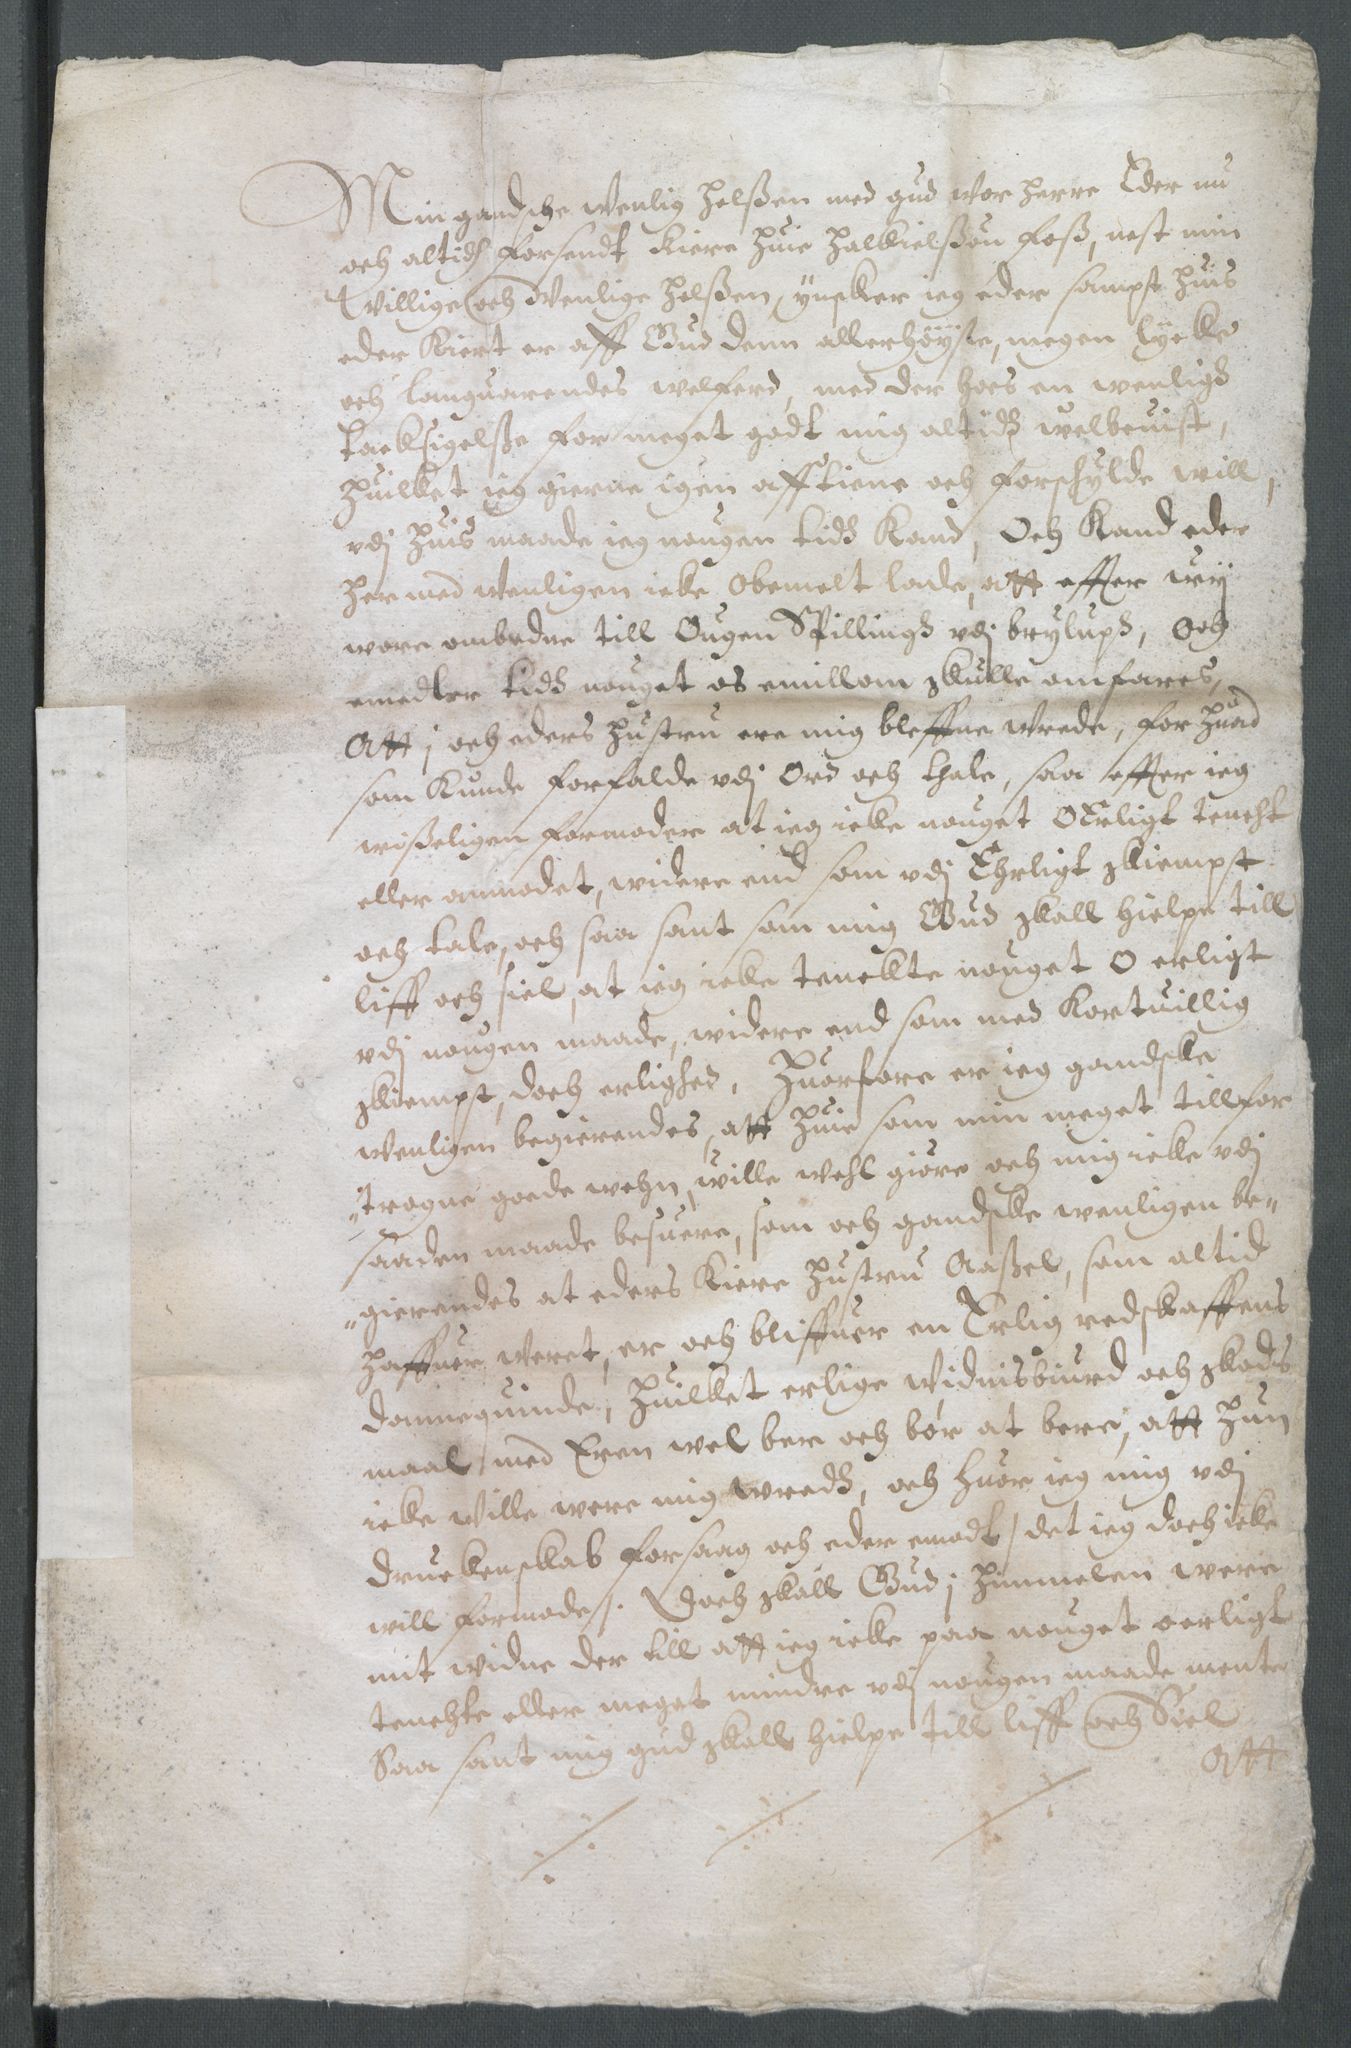 Min gandsche Venlig helsßen med gud Vor herre Eder nu
och altidtz forsendt kiere Huie Halkielsßøn Foss, nest min
Villige och Venlige helsßen, ÿnsker ieg eder sampt huis
eder kiert er aff Gud denn allerhøÿste, megen lÿcke
och langvarendes welferd, med der hoes en wenligh
tacksigelsße for meget godt mig altidz velbeuist,
huilket ieg gierne igen afftiene och forschylde will,
vdj huis maade ieg nougen tidz kand, Och kand eder
her med wenligen icke obemelt lade, att effter wÿ
wore ombedne till Ougen Spillingz vdj brylupz, Och
emedler tidz nouget os emillom skulle omfares,
Att j och eders hustru ere mig bleffne wrede, for huad
som kunde forfalde vdj ord och thale, saa effter ieg
wisßeligen formoder at ieg icke nouget OErligt tencht
eller anmodet, widere end som vdj Ehrligt skiempt
och tale, och saa sant som mig Gud skall hielpe till
liff och siel, at ieg icke tenckte nouget O erligt
vdj nougen maade, widere end som med kortuillig
skiempt, doch erlighed. Huorfore er ieg gandske
Venligen begierendes, att Huie som min meget tillfor
trogne goede wehn, wille wehl giøre och mig icke vdj
saaden maade besuere, som och gandske wenligen be-
gierendes at eders kiere hustru Aasßel, som altid
haffuer veret, er och bliffuer en Erlig redskaffens
dannequinde, huilket erlige Vidnisbiurd och skods
maal med Eren wel ber och bør at bere, att hun
icke Ville were mig wredz, och huor ieg mig vdj
druckenskab forsaag och eder emodt / det ieg doch icke
will formode /. Doch skall Gud j himmelen were
mit widne der till att ieg icke paa nouget oerligt
tenchte eller meget mindre vdj nougen maade mente
Saa sant mig gud skall hielpe till liff och Siel
Att